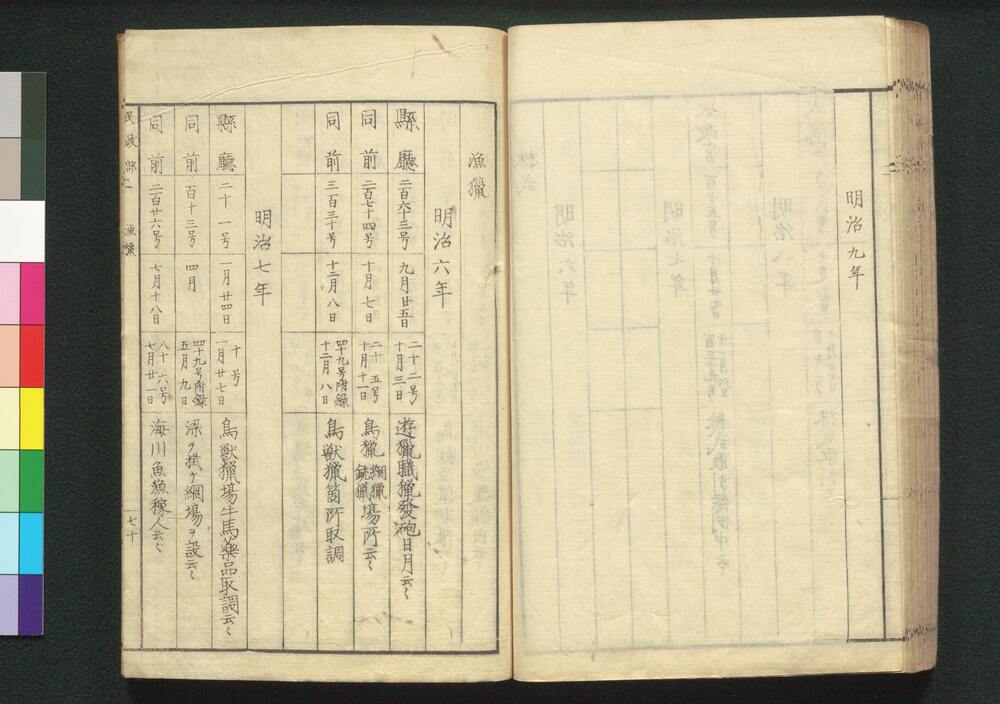 明治九年
漁獵
明治六年
縣廳 二百六十三号 九月廿五日 二十二号 十月三日 遊獵職獵發砲日月云〻
同前 二百七十四号 十月七日 二十五号 十月十一日 鳥獵網獵銃獵場所云〻
同前 三百三十号 十二月八日 四十九号附録 十二月八日 鳥獸獵箇所取調
明治七年
縣廳 二十一号 一月廿四日 十号 一月廿七日 鳥獸獵場牛馬藥品取調云〻
同前 百十三号 四月 四十九号附録 五月九日 梁ヲ掛ケ網場ヲ設云〻
同前 二百廿六号 七月十八日 八十六号 七月廿一日 海川魚漁稼人云〻
民政部二 漁獵 七十